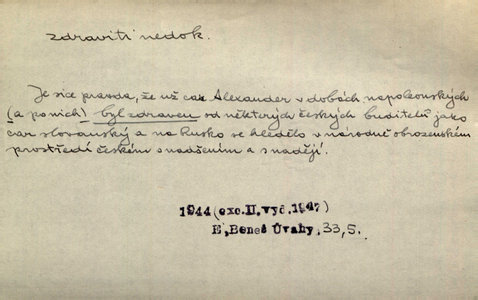 zdraviti nedok.
Je sice pravda, že už car Alexander v dobách napoleonských
(a po nich) byl zdraven od některých českých buditelů jako
car slovanský a na Rusko se hledělo v národně obrozenském
prostředí českém s nadšením a s nadějí.
1944 (exc. II. vyd. 1947)
E. Beneš Úvahy, 33, 5.